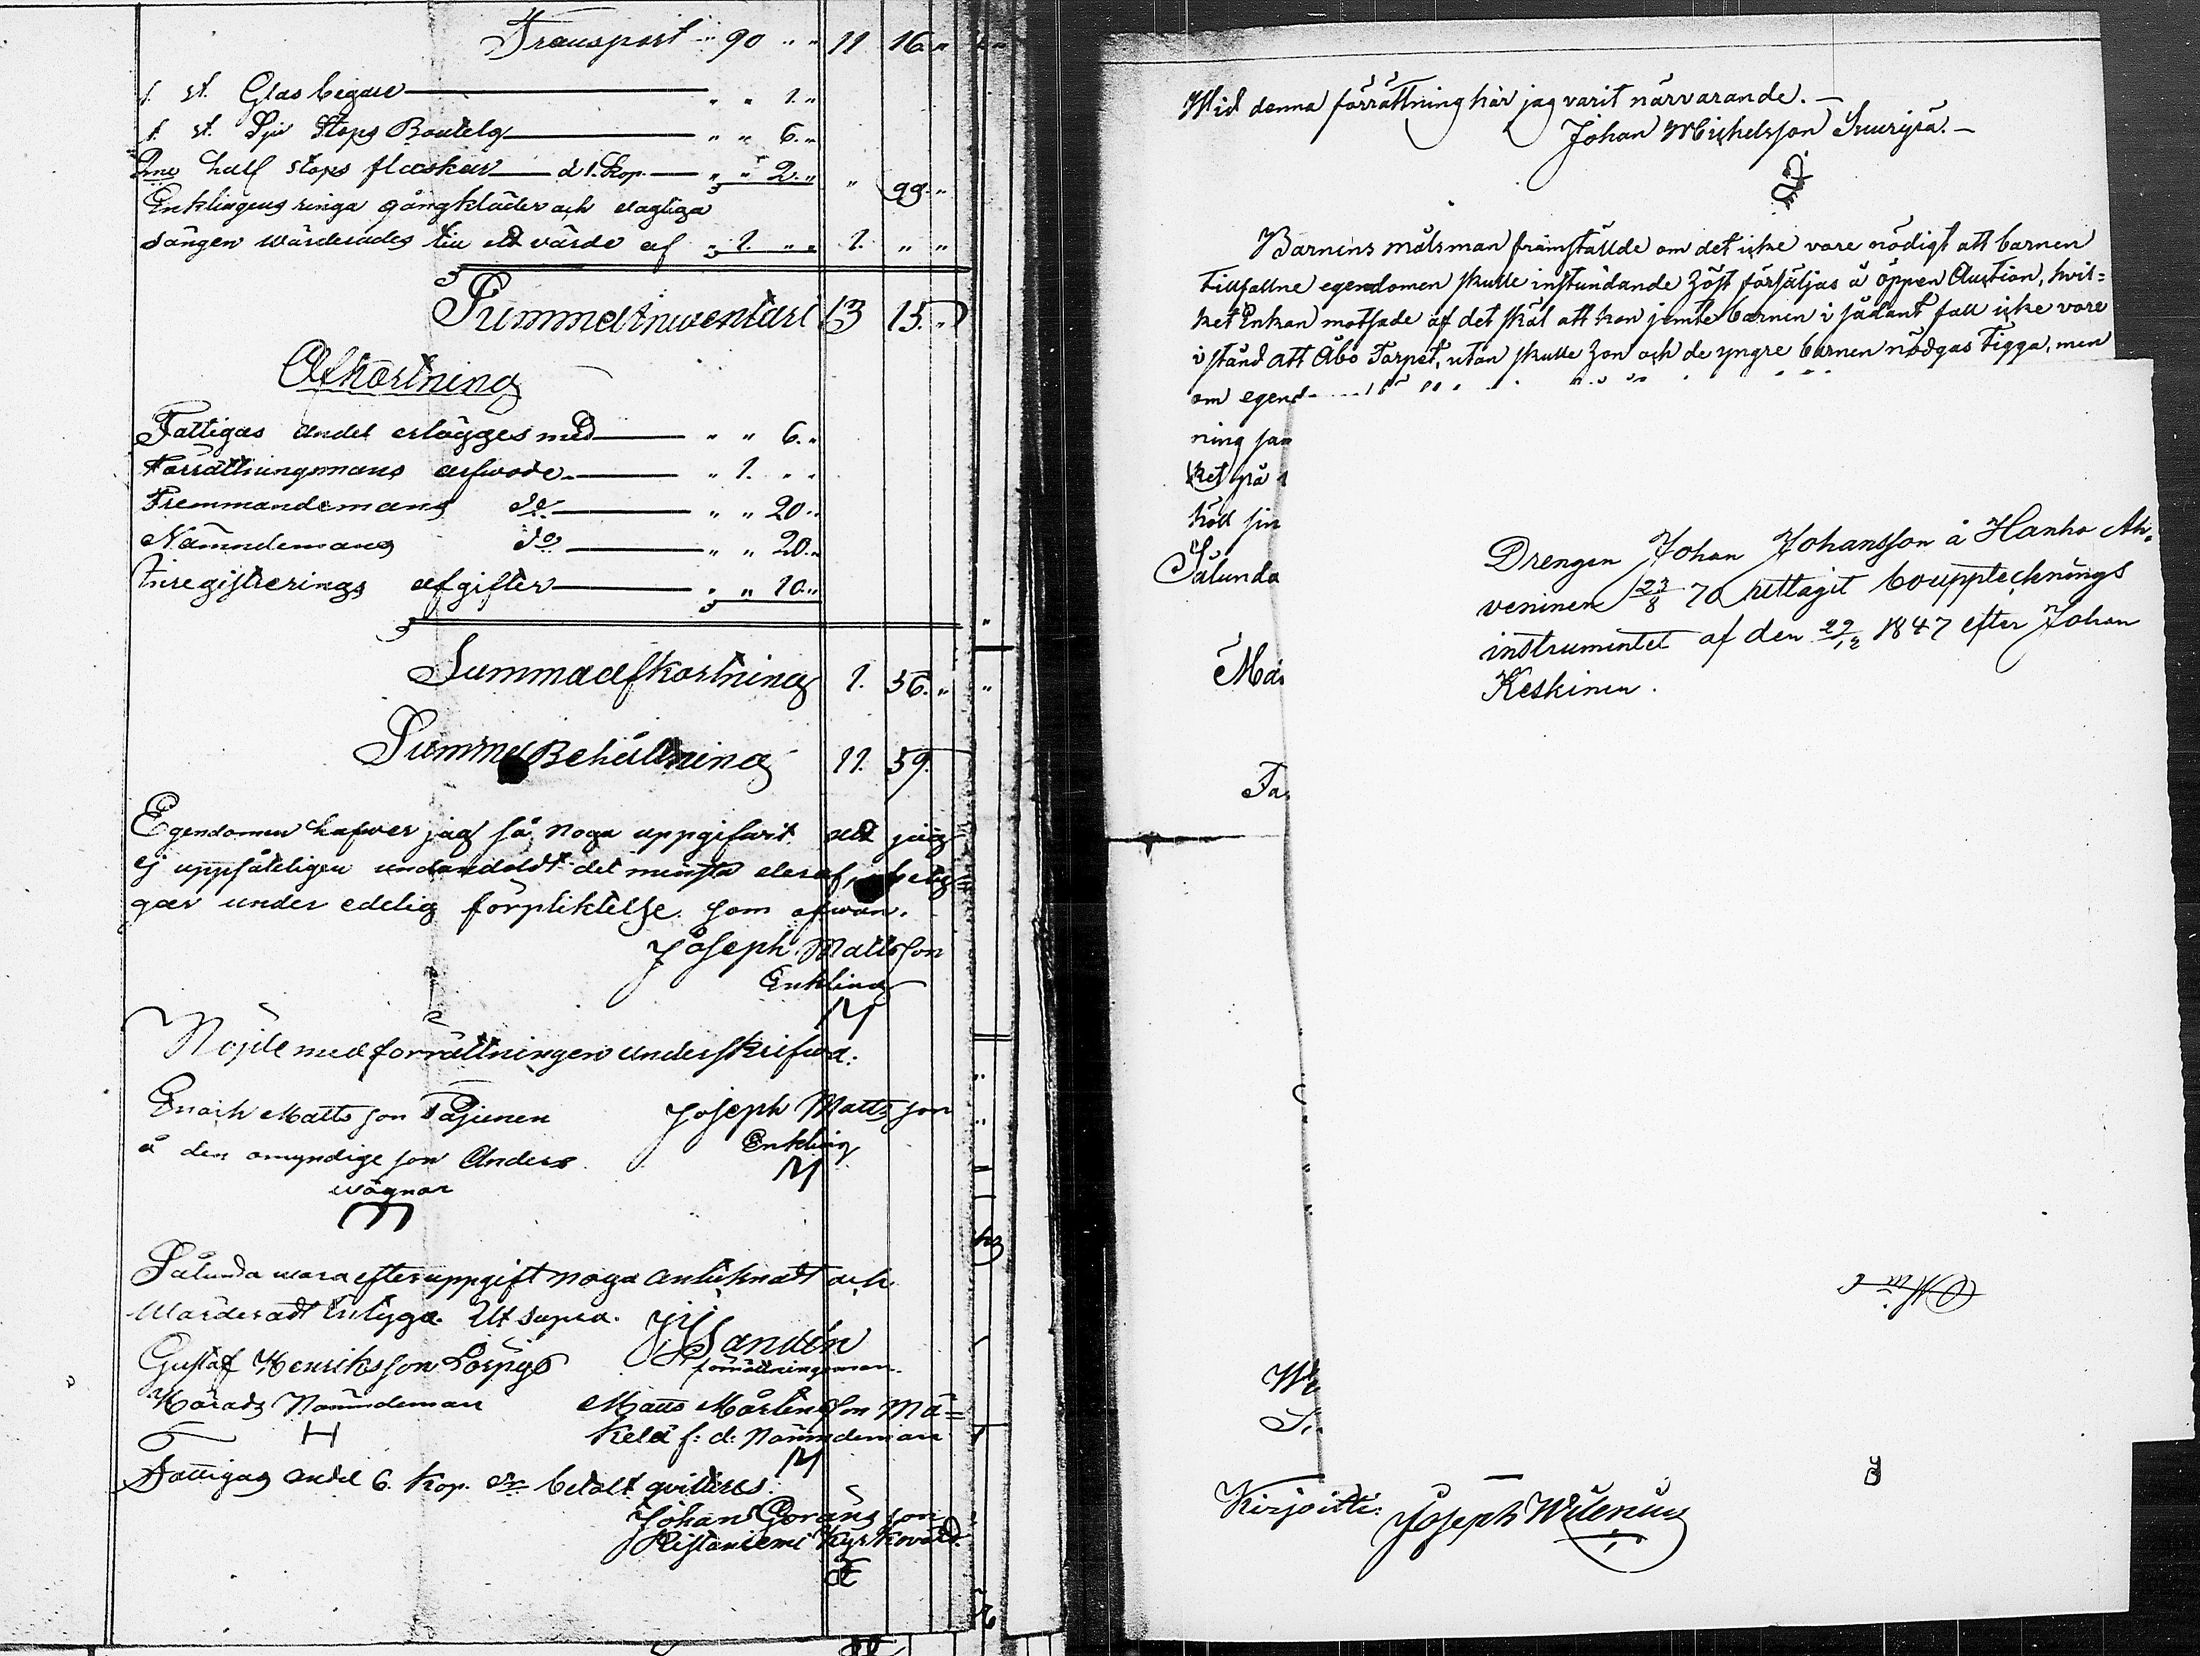 Transport " 90 " " 11 16 "
1 st. Glas bägare " " 1 "
1 st. Sju Stops Boutelg " " 6 "
Dne half stops flaskar d 1. Kop. " " 2 " " 99 "
Enklingens ringa gångkläder och dagliga
sängen wärderades till ett värde af " 1 " " 1 " "
Summa Inventari 13 15 "
Afkortning
Fattigas andel erlägges med " " 6 "
Förrättningsmans arfwode " 1 " "
Fremmandemans do " " 20 "
Nämndemans do " " 20 "
Inregistrerings afgifter " " 10 "
Summa afkortning 1 56 "
Summa Behållning 11 59
Egendomen hafwer jag så noga uppgifwit att jag
ej uppsåteligen undandoldt det minsta deraf, betyg
gar under edelig förpliktelse som ofwan.
Joseph Mattsson
Enkling
M
Nöjde med förrättningen underskrifwa:
Enoch Mattsson Pajunen
å den omyndige son Anders
wägnar
Joseph Mattsson
Enkling
M
Sålunda wara efter uppgift noga antecknadt och
Wärderadt Intyga. Ut supra.
JHSandén
förrättningsman.
Gustaf Henriksson
Härads Nämndeman
H
Matts Mårtensson Mä=
kelä f: d: Nämndeman
M
Fattigas andel 6. Kop. Sr betalt qviteres.
Johan Göransson
Ristaniemi Kyrkovärd.
Wid denna förrättning här jag varit närvarande. —
Johan Michelsson —
Barnens målsman framställde om det icke vore nödigt att barnen
tillfallne egendomen skulle instundande Höst försäljas å öppen Auction, hvil=
ket Enkan motsade af det skäl att hon jemte barnen i sådant fall icke vore
i stånd att Åbo Torpet, utan skulle hon och de yngre barnen nödgas Tigga, men
om egend
ning
ket på
håll sin
Sålunda
Drengen Johan Johansson å Hanho Ah=
veninen 23/8 70 uttagit bouppteckningsa
instrumentet af den 29/12 1847 efter Johan
Keskinen.
Kirjoitti: Joseph Wilenius